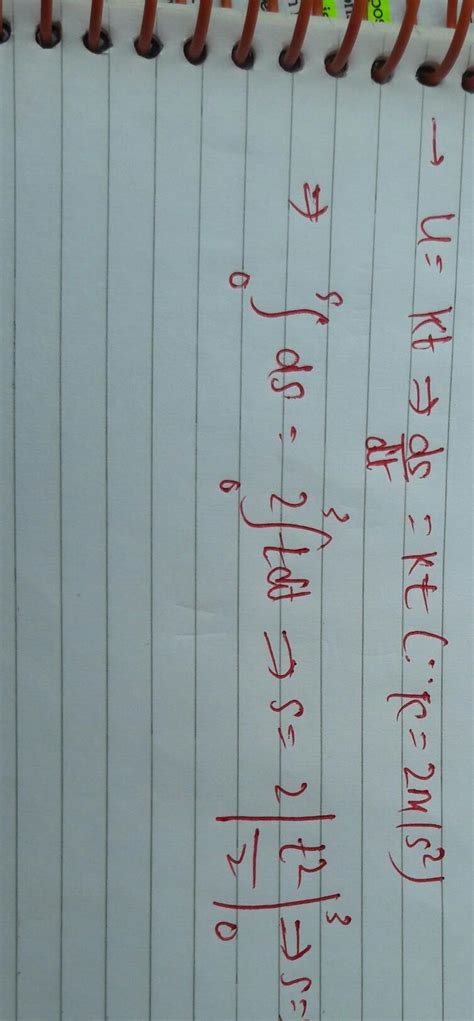 → u = kt ⇒ ds/dt = kt (∵ k = 2m/s²)
⇒ ₀∫ˢ ds = 2 ₀∫³ t dt ⇒ s = 2 |t²/2|₀³ ⇒ s =